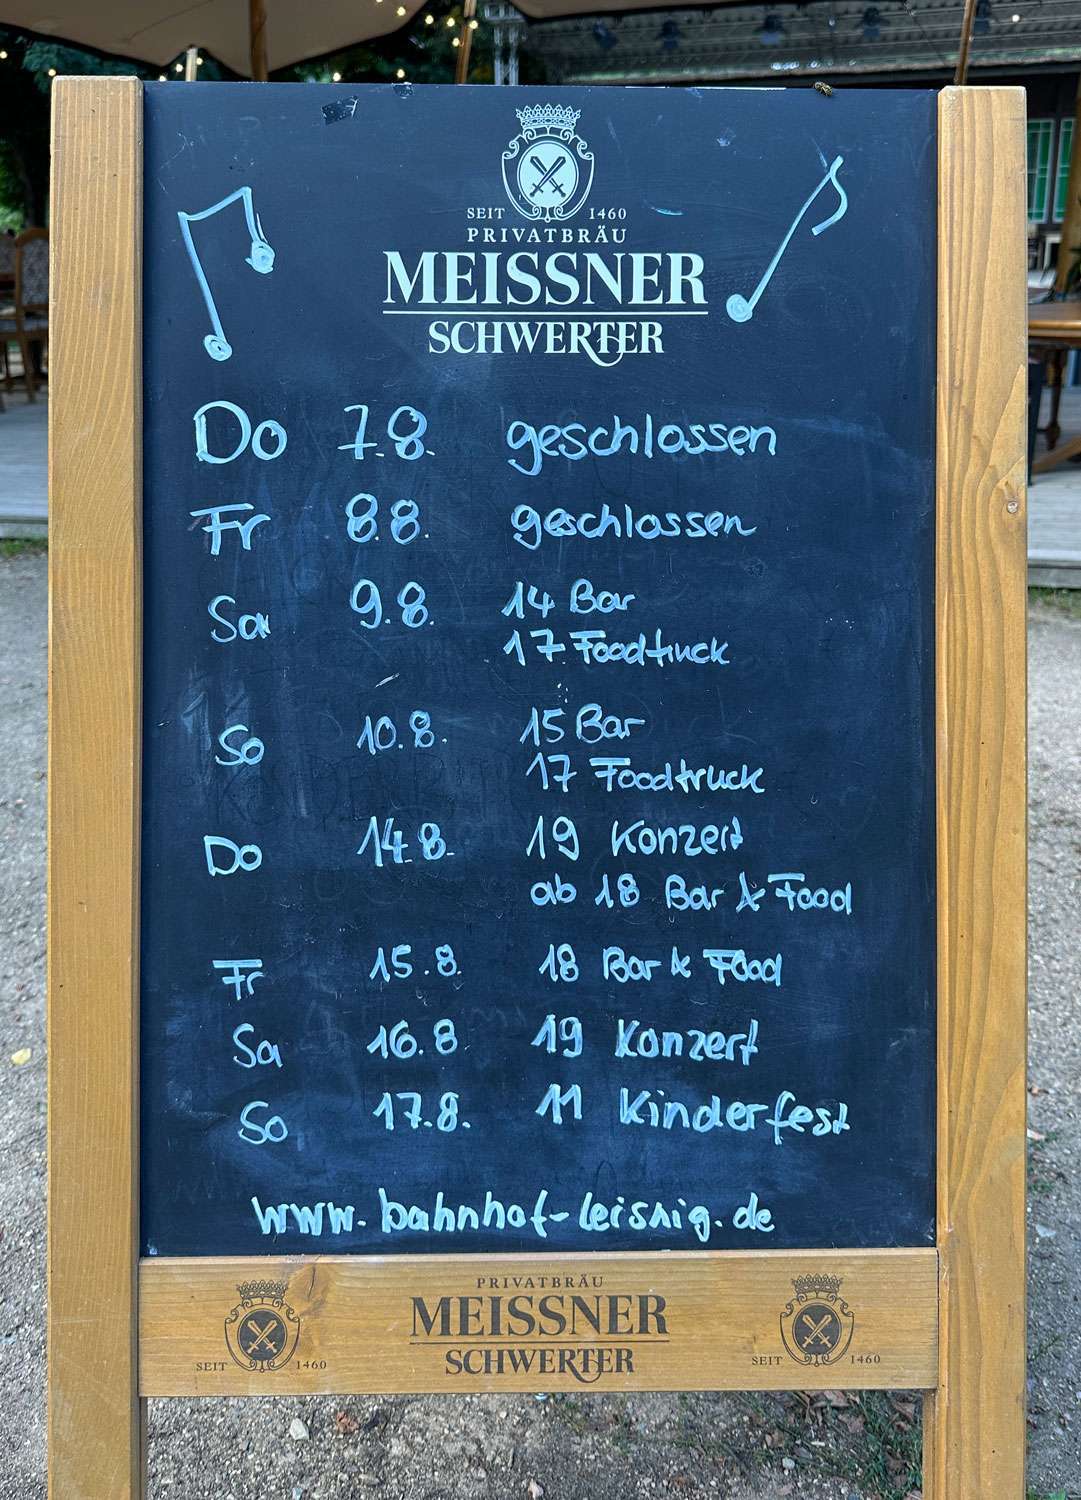 SEIT 1460
PRIVATBRÄU
MEISSNER
SCHWERTER
Do 7.8. geschlossen
Fr 8.8. geschlossen
Sa 9.8. 14 Bar
17 Foodtruck
So 10.8. 15 Bar
17 Foodtruck
Do 14.8. 19 Konzert
ab 18 Bar & Food
Fr 15.8. 18 Bar & Food
Sa 16.8. 19 Konzert
So 17.8. 11 Kinderfest
www.bahnhof-leisnig.de
PRIVATBRÄU
MEISSNER
SCHWERTER
SEIT 1460
SEIT 1460